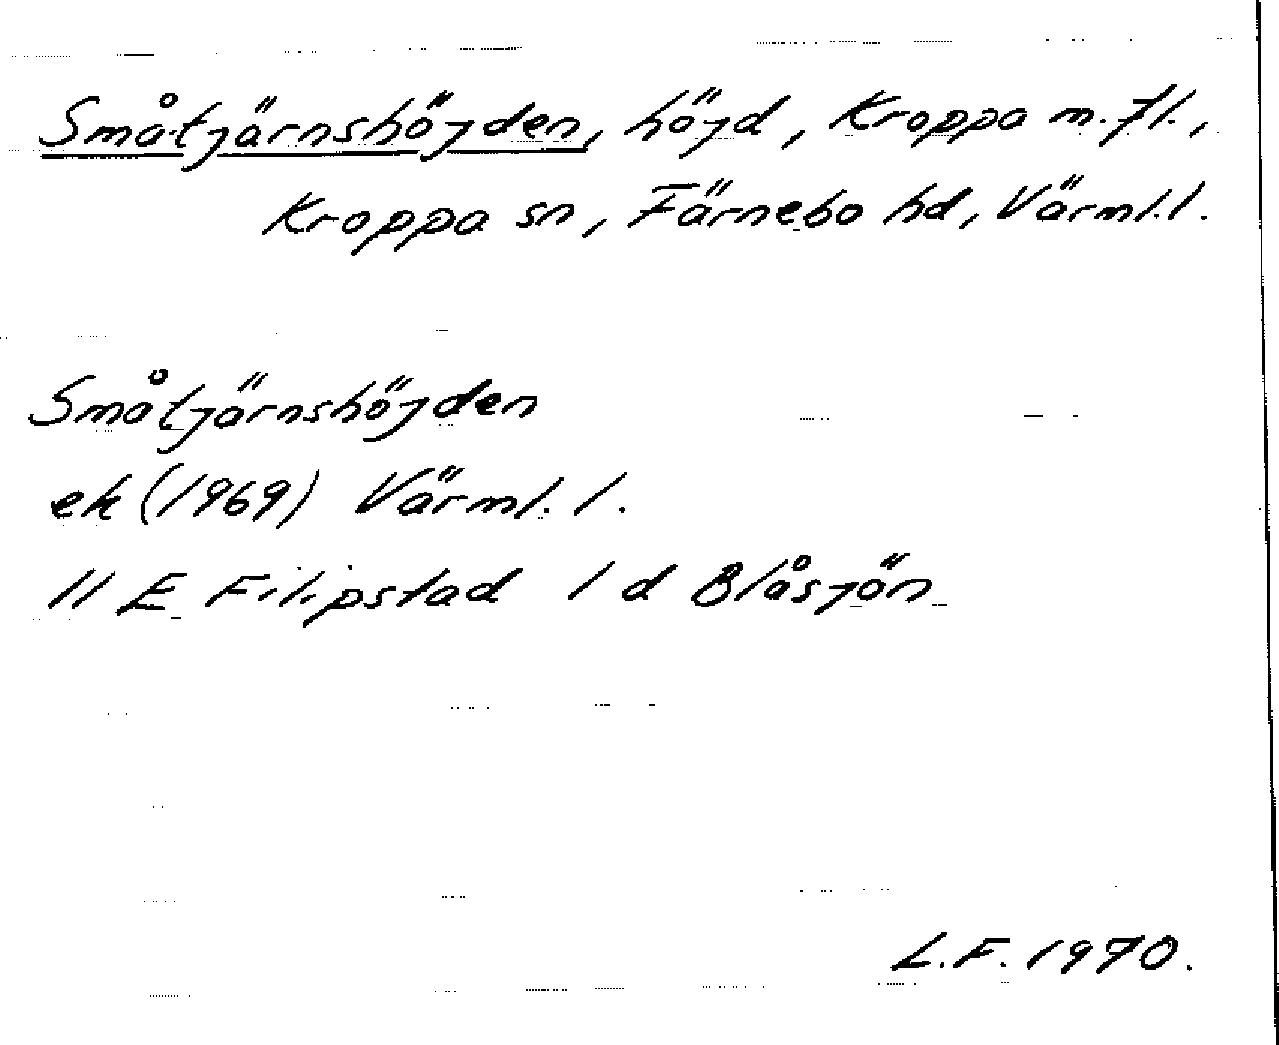 Småtjärnshöjden, höjd, Kroppa m.fl.,
Kroppa sn, Färnebo hd, Värml.l.
Småtjärnshöjden
ek (1969) Värml. l.
11 E Filipstad 1 d Blåsjön
L.F. 1970.